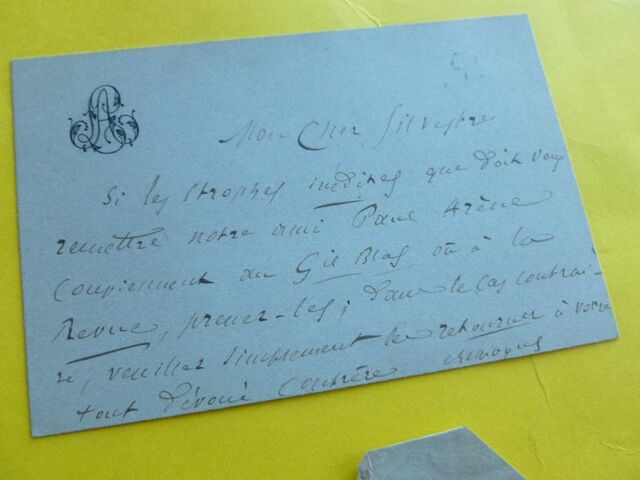 Mon Cher Silvestre
Si les strophes inédites que doit vous
remettre notre ami Paul Arène
conviennent au Gil Blas où à la
Revue, prenez-les; dans le cas contrai-
re, veuillez simplement les retourner à votre
tout dévoué confrère